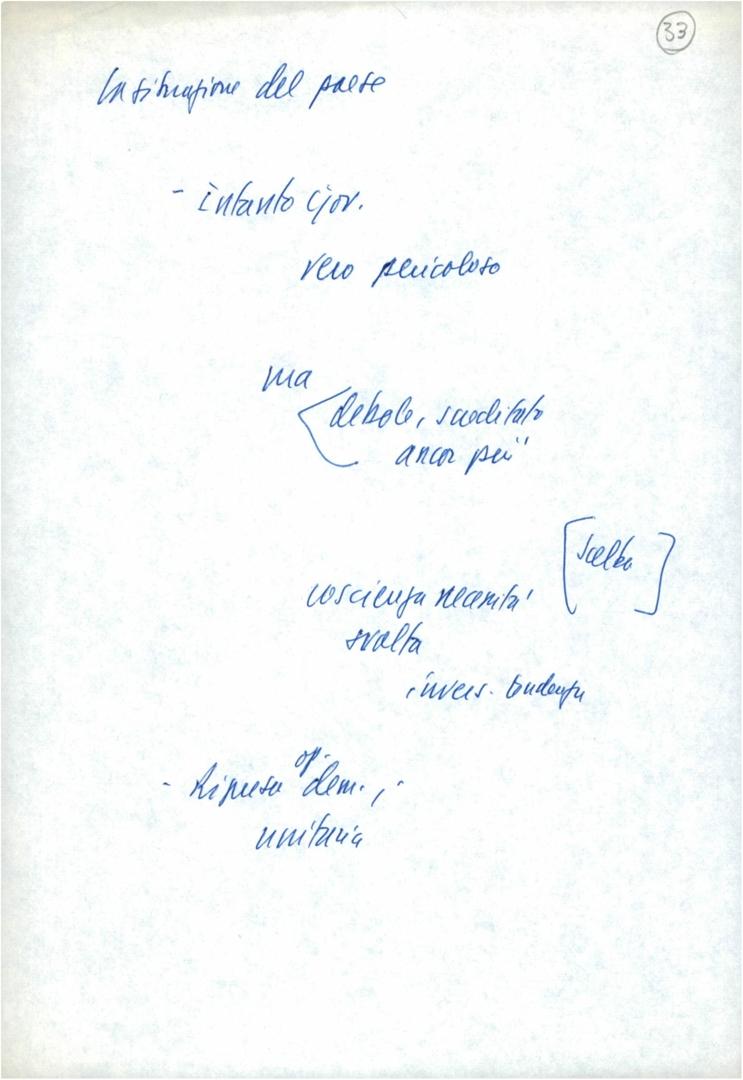 33
La situazione del paese
- intanto
vero pericoloso
ma
debole, screditato
ancor più
[Scelba]
coscienza necessità
svolta
invers. tendenza
- Ripresa op. dem.,
unitaria